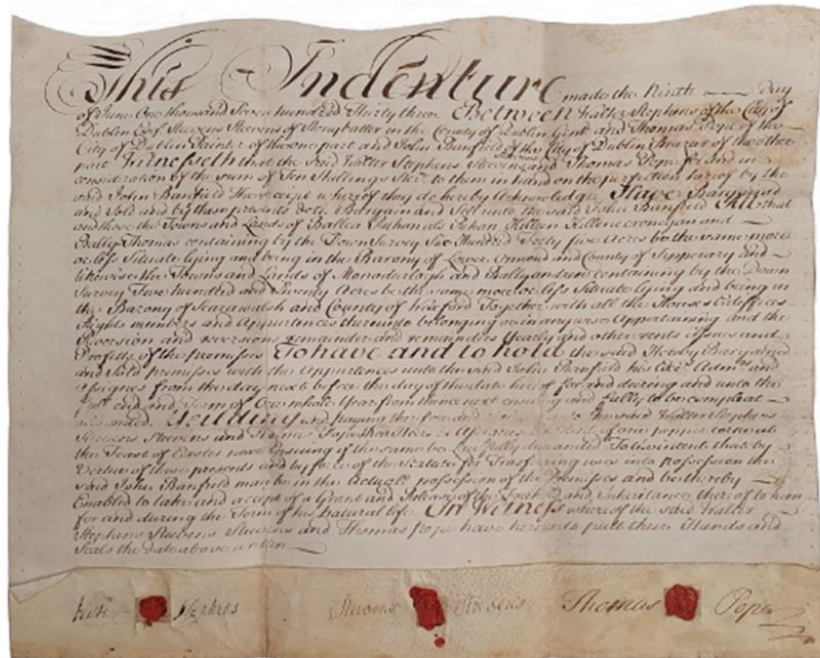 This Indenture made the Ninth day
of June One thousand Seven hundred Thirty three Between Walter Stephens of the City of
Dublin Esqr. Stevens Stevens of Stonybatter in the County of Dublin Gent and Thomas Pope of the
City of Dublin of the one part and John Banfield of the City of Dublin Brazier of the other
part Witnesseth that the said Walter Stephens Stevens Stevens and Thomas Pope for and in
consideration of the sum of Ten Shillings Ster. to them in hand on the perfection hereof by the
said John Banfield the receipt whereof they do hereby Acknowledge Have Bargained
and Sold and by these presents doth Bargain and Sell unto the said John Banfield All that
and those the Towns and Lands of and
Bally Thomas containing by the Down Survey Six Hundred Forty five Acres be the same more
or less Situate lying and being in the Barony of Lower Ormond and County of Tipperary and
likewise the Towns and Lands of and containing by the Down
Survey Five hundred and Seventy Acres be the same more or less Situate lying and being in
the Barony of Scarawalsh and County of Wexford Together with all the Houses Edifices
Rights members and Appurtences thereunto belonging or in anywise Appertaining and the
Reversion and reversions remainder and remainders Yearly and other rents issues and
Profitts of the premisses To have and to hold the said Hereby Bargained
and Sold premisses with the Appurtences unto the said John Banfield his Exrs. Admrs. and
Assignes from the day next before the day of the date hereof for and during and unto the
end and Term of One whole Year from thence next ensuing and fully to be compleat
Yeilding and paying therefore to the said Walter Stephens
Stevens Stevens and Thomas Pope their Heirs of one pepper corne at
the Feast of Easter next Ensuing if the same be Lawfully demanded To the intent that by
Vertue of these presents and by force of the Statute for Transferring uses into possession the
said John Banfield may be in the Actuall possession of the Premisses and be thereby
Enabled to take and accept of a Grant and Release of the Freehold and Inheritance thereof to him
for and during the Term of his natural life In Witness whereof the said Walter
Stephens Stevens Stevens and Thomas Pope have hereunto putt their Hands and
Seals the date above written
Walter Stephens Stevens Stevens Thomas Pope